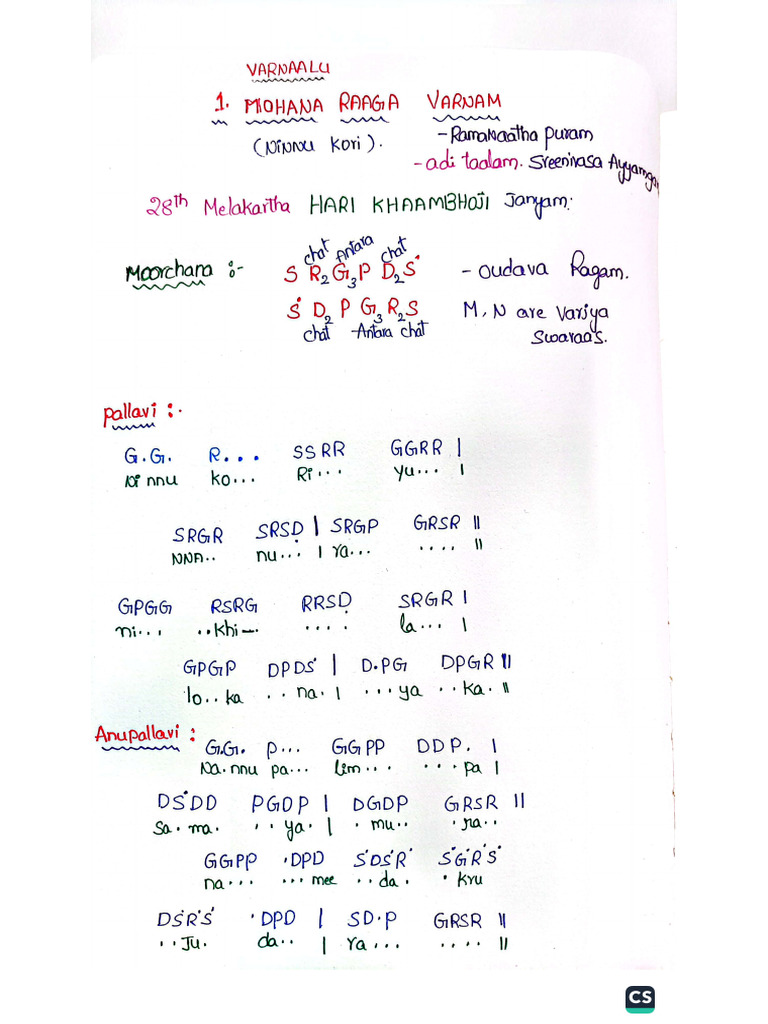 VARNAALU
1. MOHANA RAAGA VARNAM
(Ninnu Kori). -Ramanaatha puram
-adi taalam. Sreenivasa Ayyamgar
28th Melakartha HARI KHAAMBHOJI Janyam:
chat Antara chat
Moorchana :- S R2 G3 P D2 Ṡ - oudava Ragam.
Ṡ D2 P G3 R2 S M, N are Varjya
chat Antara chat Swaraas.
Pallavi :-
G.G. R... SSRR GGRR |
Ni nnu ko... Ri... yu... |
SRGR SRSḌ | SRGP GRSR ||
NNA.. nu... | ra... .... ||
GPGG RSRG RRSḌ SRGR |
ni... ..khi- .... la... |
GPGP DPDṠ | D.PG DPGR ||
lo..ka ..na. | ...ya ..ka. ||
Anupallavi :
G.G. P... GGPP DDP. |
Na.nnu pa... lim... ...pa |
DṠDD PGDP | DGDP GRSR ||
Sa.ma. ..ya. | .mu.. .ra..
GGPP .DPD ṠDṠṘ ṠĠṘṠ
na... ...mee ..da. .kru
DṠṘṠ .DPD | SD.P GRSR ||
..Ju. da.. | Ra... .... ||
CS